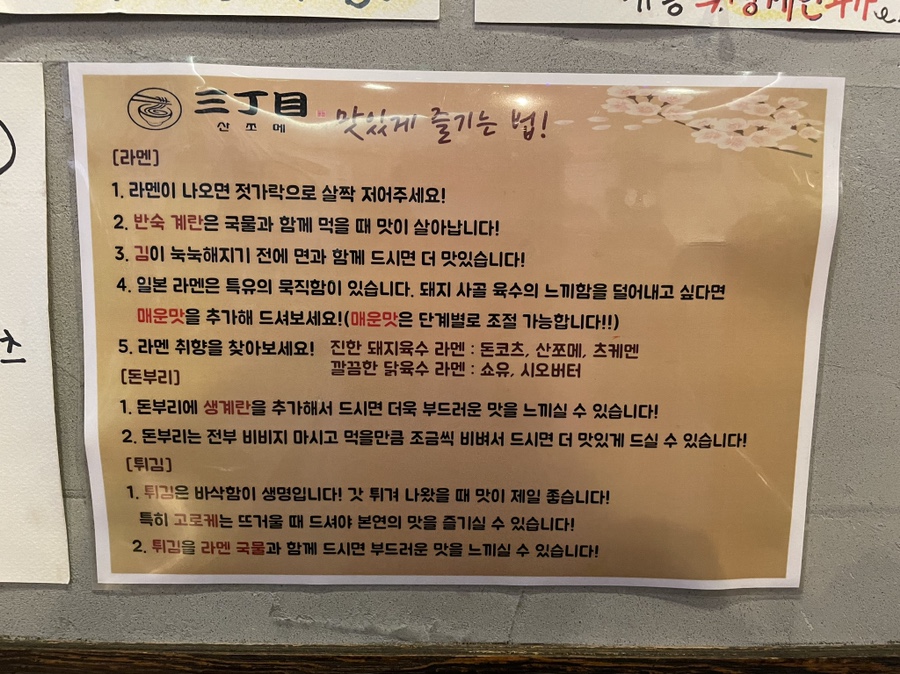 三丁目 맛있게 즐기는 법!
산쪼메
[라멘]
1. 라멘이 나오면 젓가락으로 살짝 저어주세요!
2. 반숙 계란은 국물과 함께 먹을 때 맛이 살아납니다!
3. 김이 눅눅해지기 전에 면과 함께 드시면 더 맛있습니다!
4. 일본 라멘은 특유의 묵직함이 있습니다. 돼지 사골 육수의 느끼함을 덜어내고 싶다면
매운맛을 추가해 드셔보세요!(매운맛은 단계별로 조절 가능합니다!!)
5. 라멘 취향을 찾아보세요! 진한 돼지육수 라멘 : 돈코츠, 산쪼메, 츠케멘
깔끔한 닭육수 라멘 : 쇼유, 시오버터
[돈부리]
1. 돈부리에 생계란을 추가해서 드시면 더욱 부드러운 맛을 느끼실 수 있습니다!
2. 돈부리는 전부 비비지 마시고 먹을만큼 조금씩 비벼서 드시면 더 맛있게 드실 수 있습니다!
[튀김]
1. 튀김은 바삭함이 생명입니다! 갓 튀겨 나왔을 때 맛이 제일 좋습니다!
특히 고로케는 뜨거울 때 드셔야 본연의 맛을 즐기실 수 있습니다!
2. 튀김을 라멘 국물과 함께 드시면 부드러운 맛을 느끼실 수 있습니다!
츠